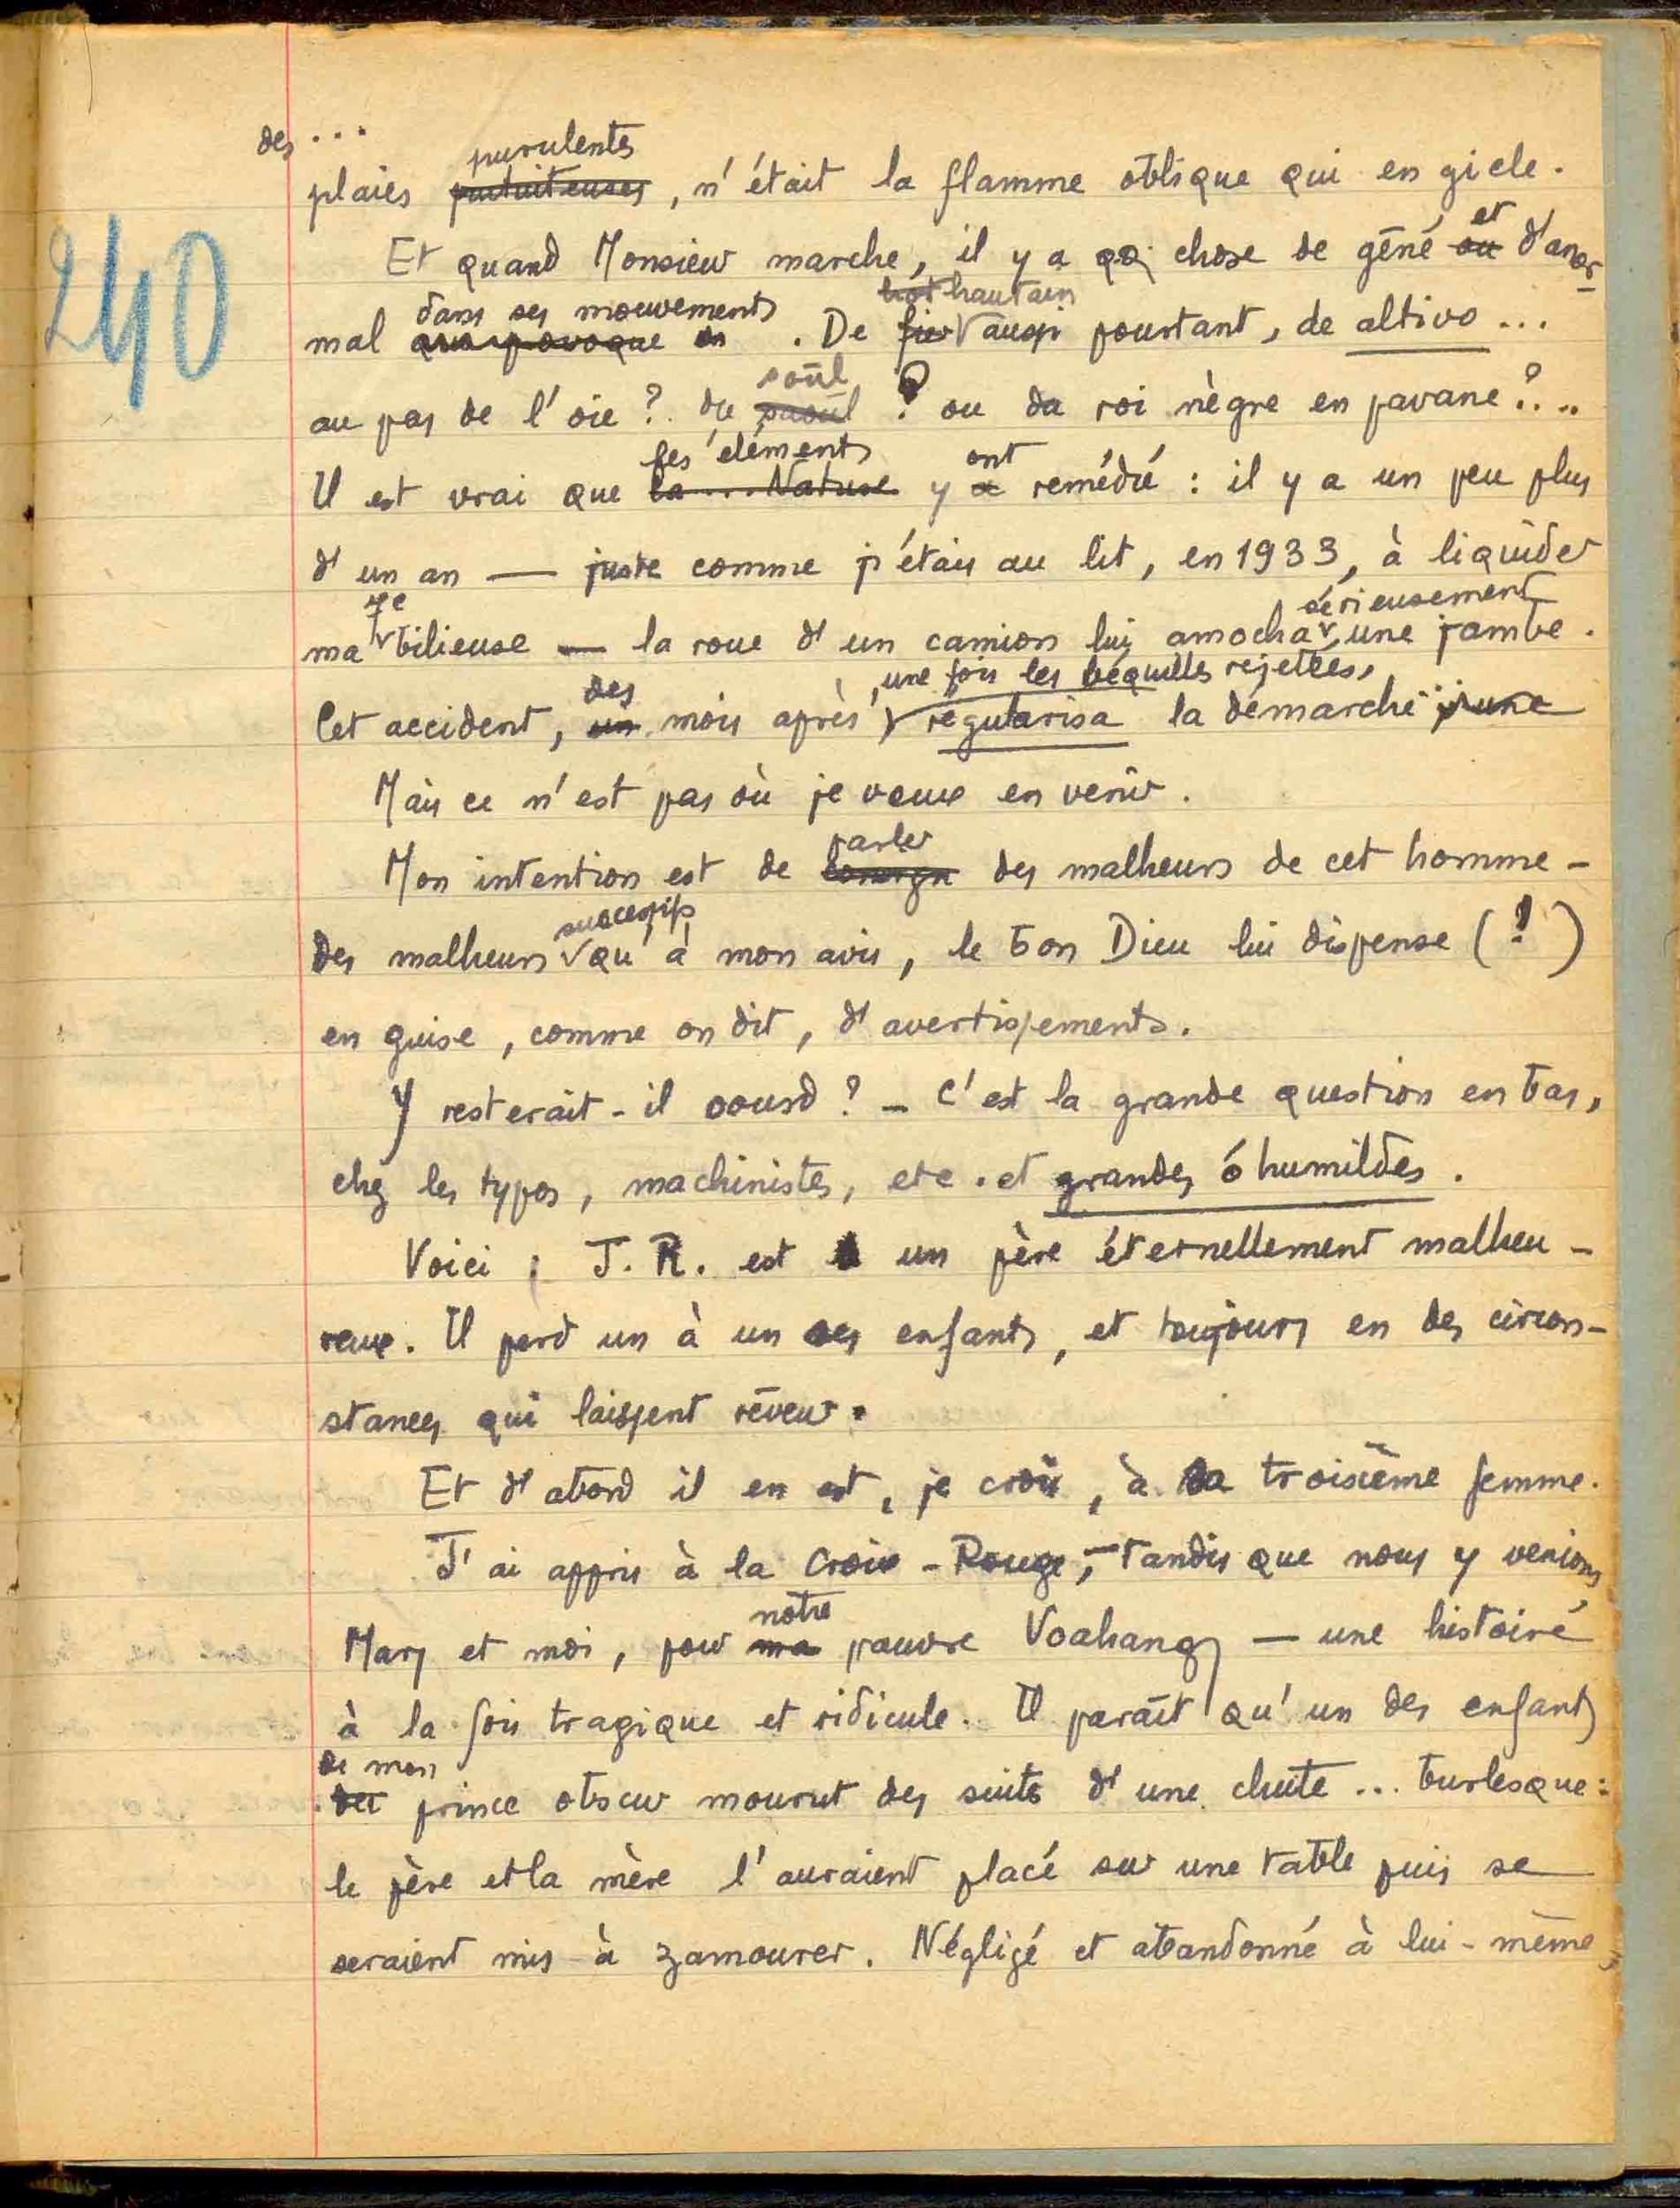 240
des ...
purulentes
plaies , n'était la flamme oblique qui en gicle.
et
Et quand Monsieur marche, il y a qq chose de gêné ou d'anor-
dans ses mouvements hautain
mal . De fier aussi pourtant, de altivo ...
soûl
au pas de l'oie ? du saoûl ? ou da roi nègre en pavane ? ..
les éléments ont
Il est vrai que la ... Nature y a remédié : il y a un peu plus
d'un an — juste comme j'étais au lit, en 1933, à liquider
7e sérieusement
ma bilieuse — la roue d'un camion lui amocha une jambe.
des une fois les béquilles rejetées,
Cet accident, un mois après régularisa la démarche
Mais ce n'est pas où je veux en venir.
parler
Mon intention est de des malheurs de cet homme -
successifs
des malheurs qu'à mon avis, le bon Dieu lui dispense (!)
en guise, comme on dit, d'avertissements.
Y resterait-il sourd ? - C'est la grande question en bas,
chez les typos, machinistes, etc. et grandes ó humildes.
Voici : J. R. est un père éternellement malheu-
reux. Il perd un à un ses enfants, et toujours en des circon-
stances qui laissent rêveur.
Et d'abord il en est, je crois, à sa troisième femme.
J'ai appris à la Croix-Rouge, — tandis que nous y venions
notre
Mary et moi, pour ma pauvre Voahangy — une histoire
à la fois tragique et ridicule. Il paraît qu'un des enfants
de mon
du prince obscur mourut des suites d'une chute ... burlesque :
le père et la mère l'auraient placé sur une table puis se
seraient mis à zamourer. Négligé et abandonné à lui-même,